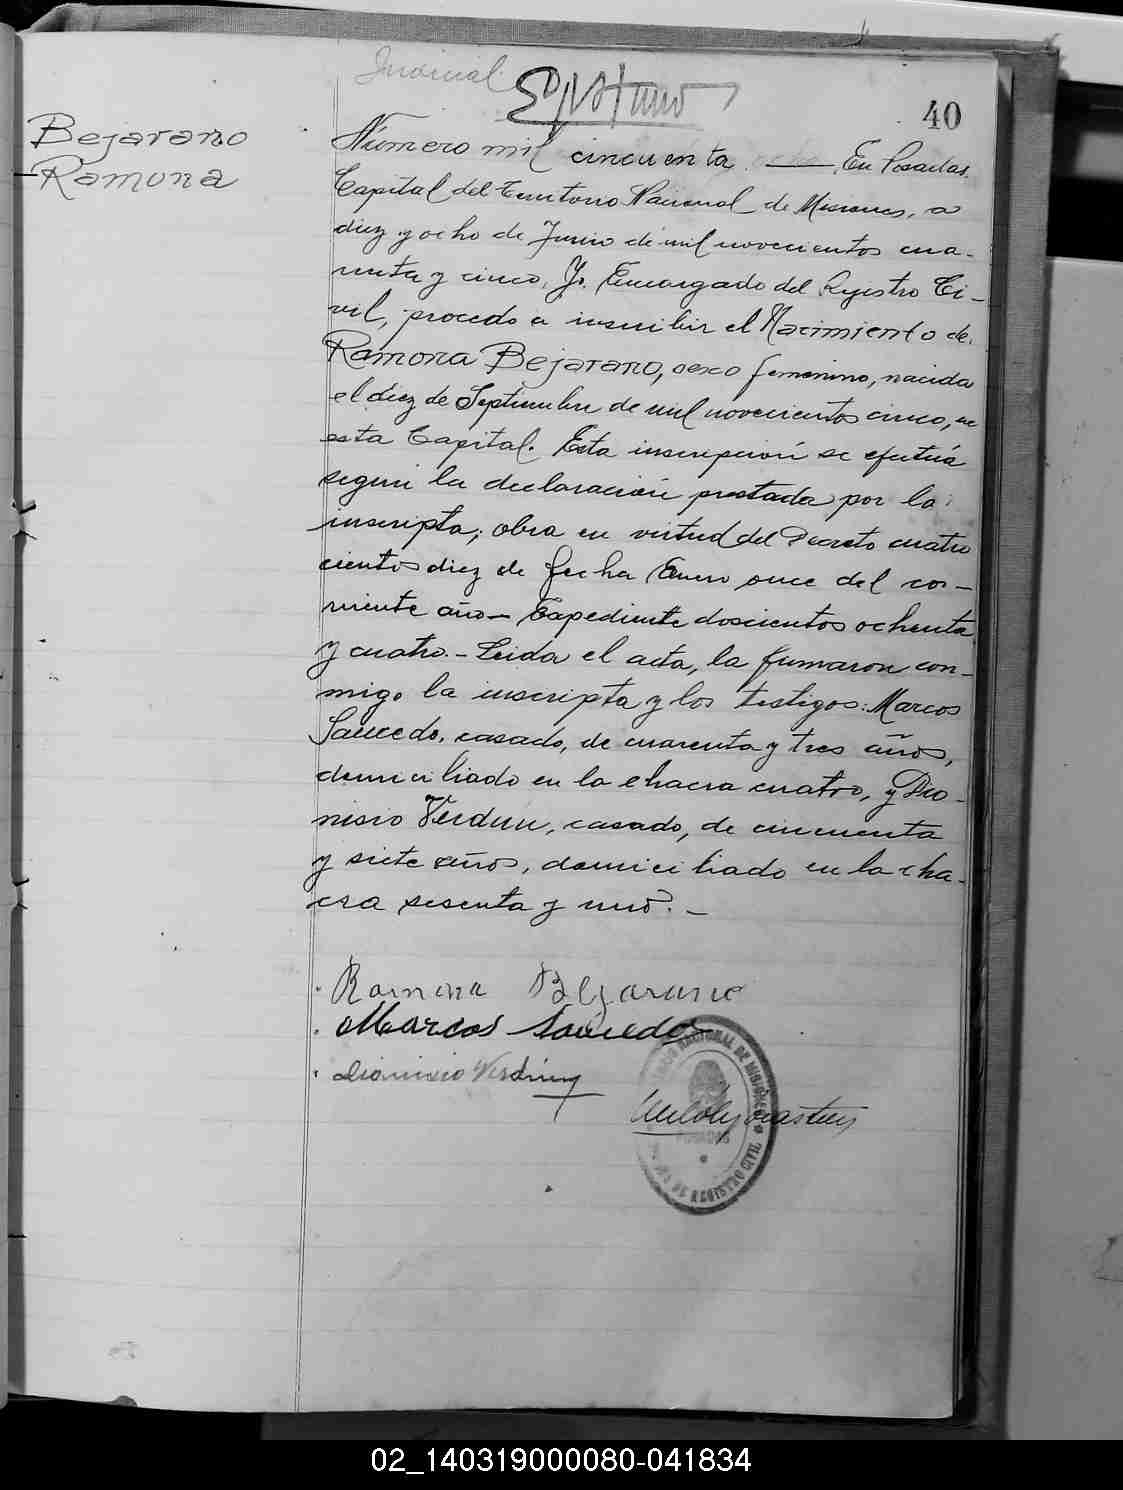 Judicial
40
Bejarano
Ramona
Número mil cincuenta En Posadas,
Capital del Territorio Nacional de Misiones, a
diez y ocho de Junio de mil novecientos cua-
renta y cinco, Yo, Encargado del Registro Ci-
vil, procedo a inscribir el Nacimiento de
Ramona Bejarano, sexo femenino, nacida
el diez de Septiembre de mil novecientos cinco, en
esta Capital. Esta inscripción se efectúa
según la declaración prestada por la
inscripta; obra en virtud del Decreto cuatro
cientos diez de fecha Enero once del co-
rriente año - Expediente doscientos ochenta
y cuatro. - Leida el acta, la firmaron con-
migo la inscripta y los testigos: Marcos
Saucedo, casado, de cuarenta y tres años,
domiciliado en la chacra cuatro, y Dio-
nisio Verdun, casado, de cincuenta
y siete años, domiciliado en la cha-
cra sesenta y uno. -
Ramona Bejarano
Marcos Saucedo
Dionisio Verdun
NACIONAL DE MISIONES
POSADAS
DE REGISTRO CIVIL
02_140319000080-041834